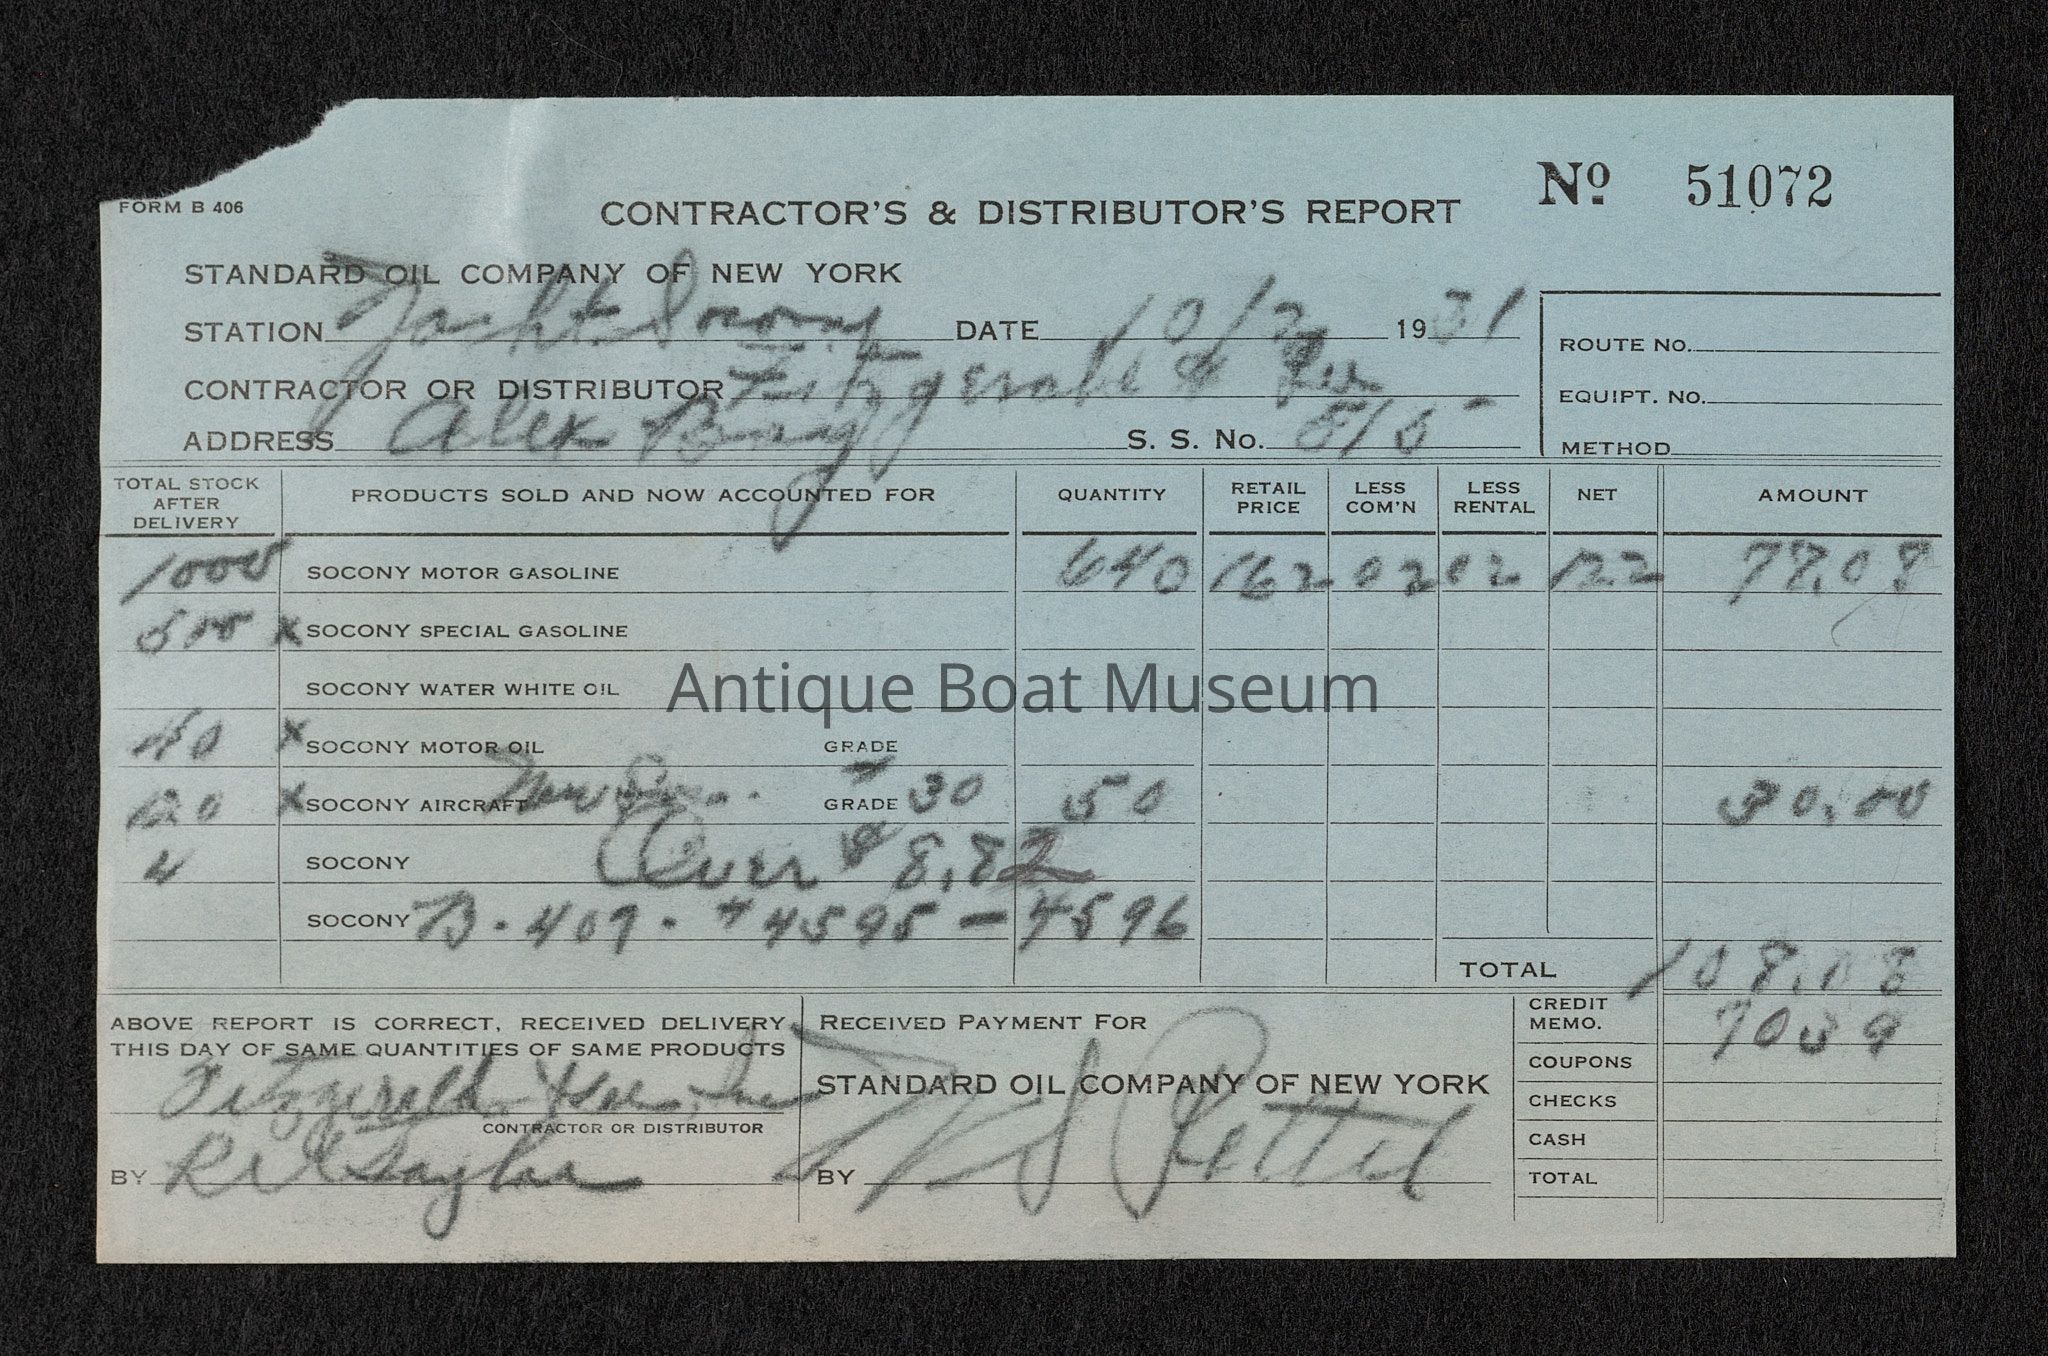 FORM B 406
CONTRACTOR'S & DISTRIBUTOR'S REPORT
Nº 51072
STANDARD OIL COMPANY OF NEW YORK
STATION Yacht Socony DATE 10/2 1931
ROUTE NO.
CONTRACTOR OR DISTRIBUTOR Fitzgerald &
EQUIPT. NO.
ADDRESS Alex Bay S. S. No. 515
METHOD
TOTAL STOCK AFTER DELIVERY PRODUCTS SOLD AND NOW ACCOUNTED FOR QUANTITY RETAIL PRICE LESS COM'N LESS RENTAL NET AMOUNT
1000 SOCONY MOTOR GASOLINE 640 162 02 02 122 78.08
500 x SOCONY SPECIAL GASOLINE
SOCONY WATER WHITE OIL
Antique Boat Museum
40 x SOCONY MOTOR OIL GRADE
120 x SOCONY AIRCRAFT GRADE 30 50 30.00
4 SOCONY Over $ 8.82
SOCONY B-409- #4595-4596
TOTAL 108.08
ABOVE REPORT IS CORRECT, RECEIVED DELIVERY
THIS DAY OF SAME QUANTITIES OF SAME PRODUCTS
Fitzgerald & Lee, Inc
CONTRACTOR OR DISTRIBUTOR
BY Taylor
RECEIVED PAYMENT FOR
STANDARD OIL COMPANY OF NEW YORK
BY Pettit
CREDIT MEMO. 7039
COUPONS
CHECKS
CASH
TOTAL